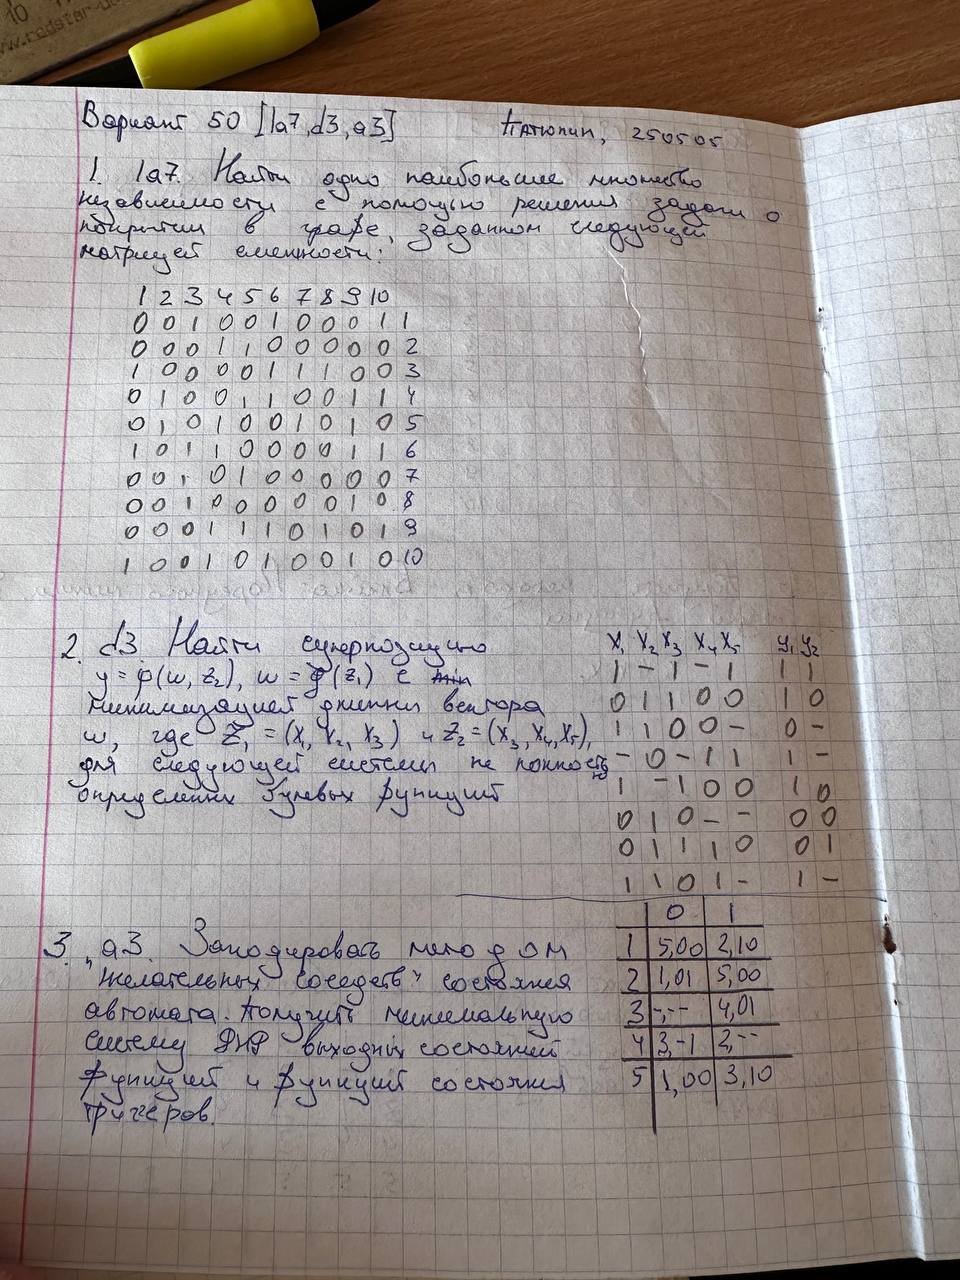 10
www.rodstar-
Вариант 50 [1а7, d3, а3] Патюпин, 250505
1. 1а7. Найти одно наибольшее множество
независимости с помощью решения задачи о
покрытии в графе, заданном следующей
матрицей смежности:
1 2 3 4 5 6 7 8 9 10
0 0 1 0 0 1 0 0 0 1 1
0 0 0 1 1 0 0 0 0 0 2
1 0 0 0 0 1 1 1 0 0 3
0 1 0 0 1 1 0 0 1 1 4
0 1 0 1 0 0 1 0 1 0 5
1 0 1 1 0 0 0 0 1 1 6
0 0 1 0 1 0 0 0 0 0 7
0 0 1 0 0 0 0 0 1 0 8
0 0 0 1 1 1 0 1 0 1 9
1 0 0 1 0 1 0 0 1 0 10
2. d3 Найти суперпозицию
y = φ(w, z₂), w = g(z₁) с min
минимизацией длинны вектора
w, где Z₁ = (x₁, x₂, x₃) и Z₂ = (x₃, x₄, x₅),
для следующей системы не полностью
определенных булевых функций
x₁ x₂ x₃ x₄ x₅ y₁ y₂
1 - 1 - 1 1 1
0 1 1 0 0 1 0
1 1 0 0 - 0 -
- 0 - 1 1 1 -
1 - 1 0 0 1 0
0 1 0 - - 0 0
0 1 1 1 0 0 1
1 1 0 1 - 1 -
3. а3. Закодировать методом
"желательных соседств" состояния
автомата. Получить минимальную
систему ДНФ выходных состояний
функций и функций состояния
тригеров.
0 1
1 5,00 2,10
2 1,01 5,00
3 -,-- 4,01
4 3,-1 2,--
5 1,00 3,10